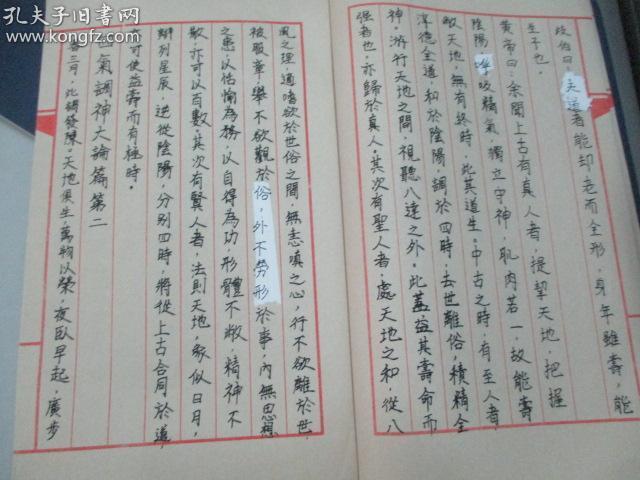 孔夫子旧书网
岐伯曰：夫道者能却老而全形，身年雖壽，能
生子也。
黃帝曰：余聞上古有真人者，提挈天地，把握
陰陽，呼吸精氣，獨立守神，肌肉若一，故能壽
敝天地，無有終時，此其道生。中古之時，有至人者，
淳德全道，和於陰陽，調於四時，去世離俗，積精全
神，游行天地之間，視聽八達之外。此蓋益其壽命而
强者也，亦歸於真人。其次有聖人者，處天地之和，從八
風之理，適嗜欲於世俗之間，無恚嗔之心，行不欲離於世，
被服章，舉不欲觀於俗，外不勞形於事，內無思想
之患，以恬愉為務，以自得為功，形體不敝，精神不
散，亦可以百數。其次有賢人者，法則天地，象似日月，
辯列星辰，逆從陰陽，分別四時，將從上古合同於道，
亦可使益壽而有極時。
四氣調神大論篇第二
春三月，此謂發陳。天地俱生，萬物以榮，夜臥早起，廣步